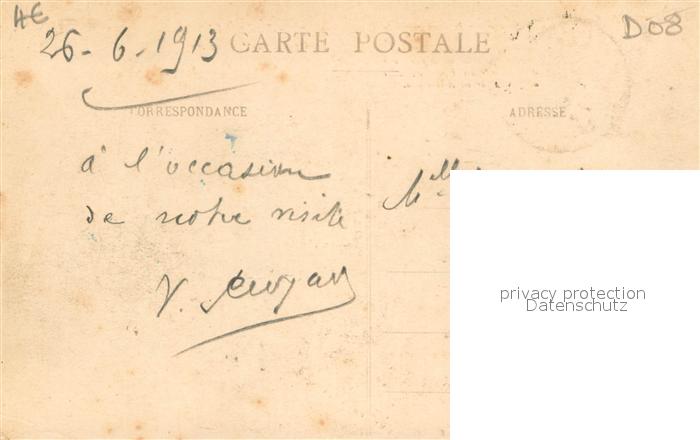 4€
D08
26-6-1913 CARTE POSTALE
CORRESPONDANCE
ADRESSE
à l'occasion
de notre visite
Mlle
V.
privacy protection
Datenschutz